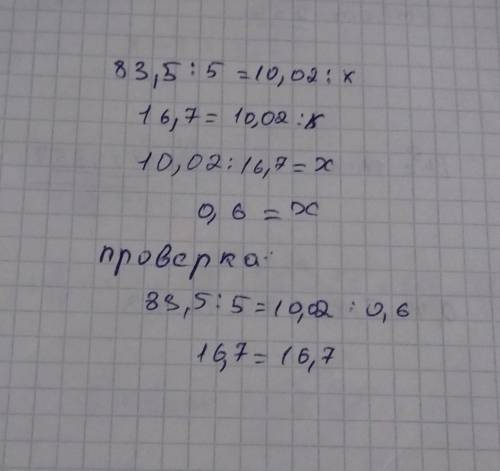 83,5 : 5 = 10,02 : x
16,7 = 10,02 : x
10,02 : 16,7 = x
0,6 = x
проверка:
83,5 : 5 = 10,02 : 0,6
16,7 = 16,7